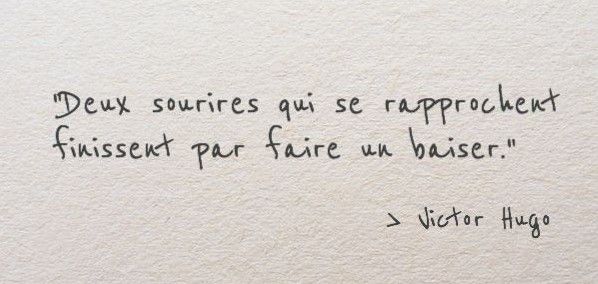 "Deux sourires qui se rapprochent
finissent par faire un baiser."
> Victor Hugo